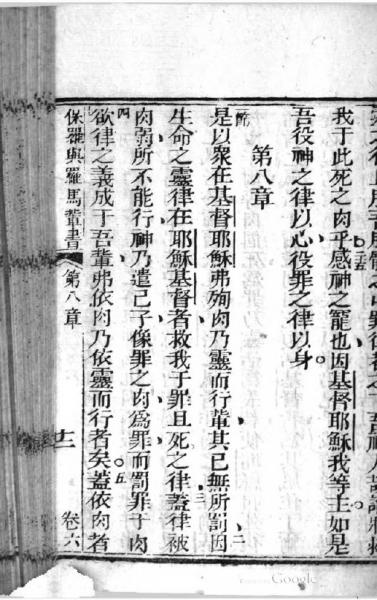 我于此死之肉乎感神之寵也因基督耶穌我等主如是
吾役神之律以心役罪之律以身
第八章
是以衆在基督耶穌弗殉肉乃靈而行輩其已無所罰因
生命之靈律在耶穌基督者救我于罪且死之律蓋律被
肉弱所不能行神乃遣己子像罪之肉為罪而罰罪于肉
欲律之義成于吾輩弗依肉乃依靈而行者矣蓋依肉者
保羅與羅馬輩書 第八章 十二 卷六
Google